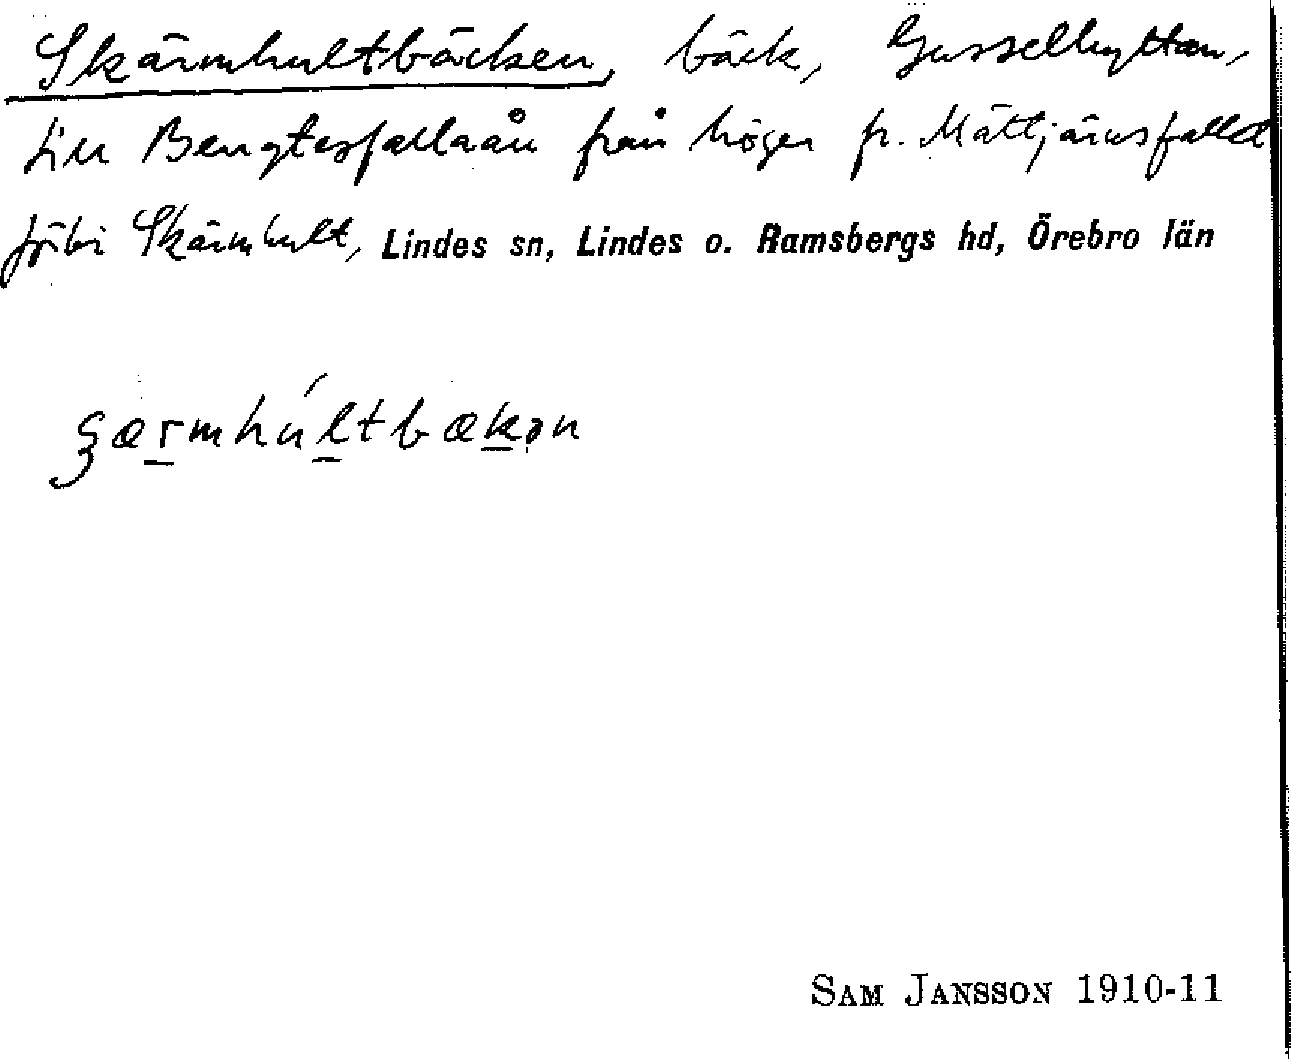 Skärmhultbäcken, bäck, Gusselhyttan,
till Bengtesfallaån från höger fr. Mättjärnsfallet
förbi Skärmhult, Lindes sn, Lindes o. Ramsbergs hd, Örebro län
ʂærmhúltbækən
SAM JANSSON 1910-11